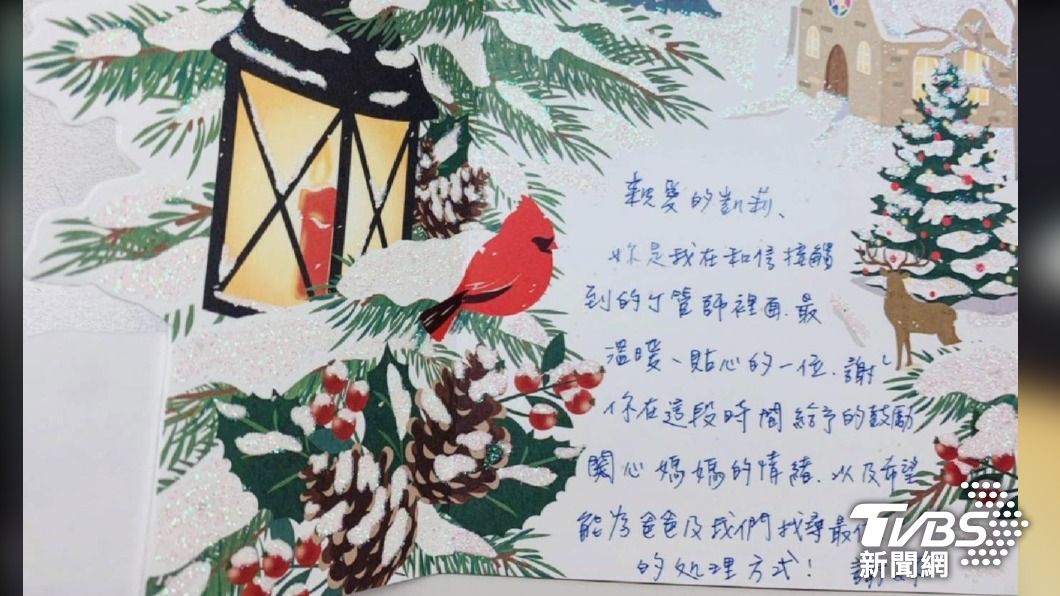 親愛的凱莉、
妳是我在和信接觸
到的個管師裡面、最
溫暖、貼心的一位、謝謝
你在這段時間給予的鼓勵
關心媽媽的情緒、以及希望
能為爸爸及我們找尋最
的処理方式！
TVBS
新聞網